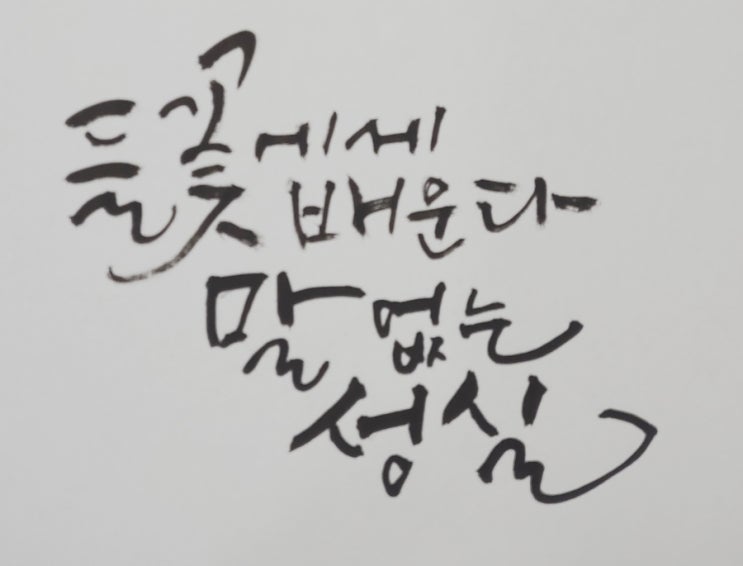 들꽃에게
배운다
말 없는
성실